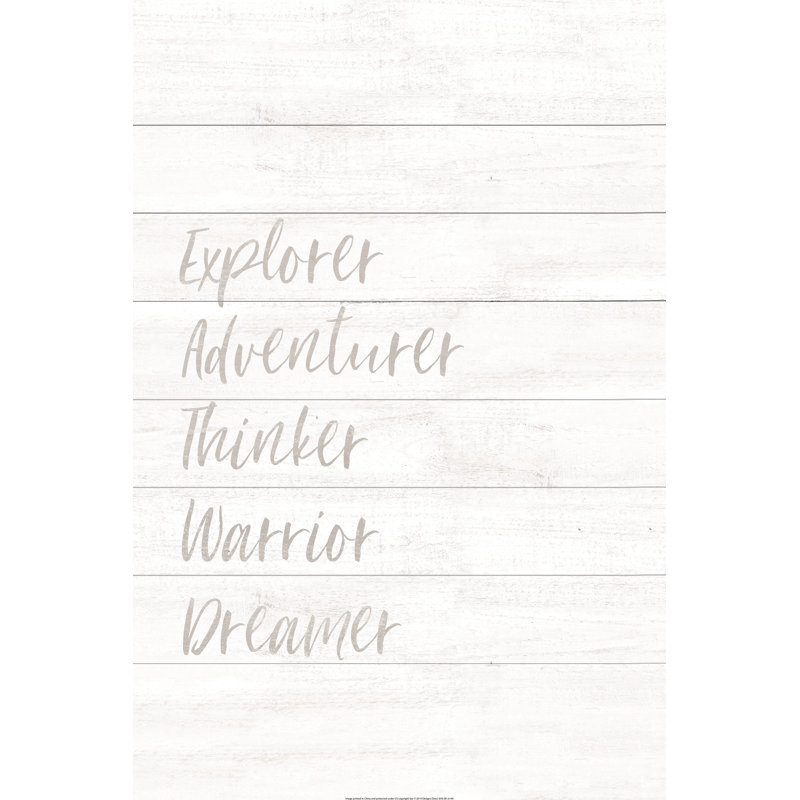 Explorer
Adventurer
Thinker
Warrior
Dreamer